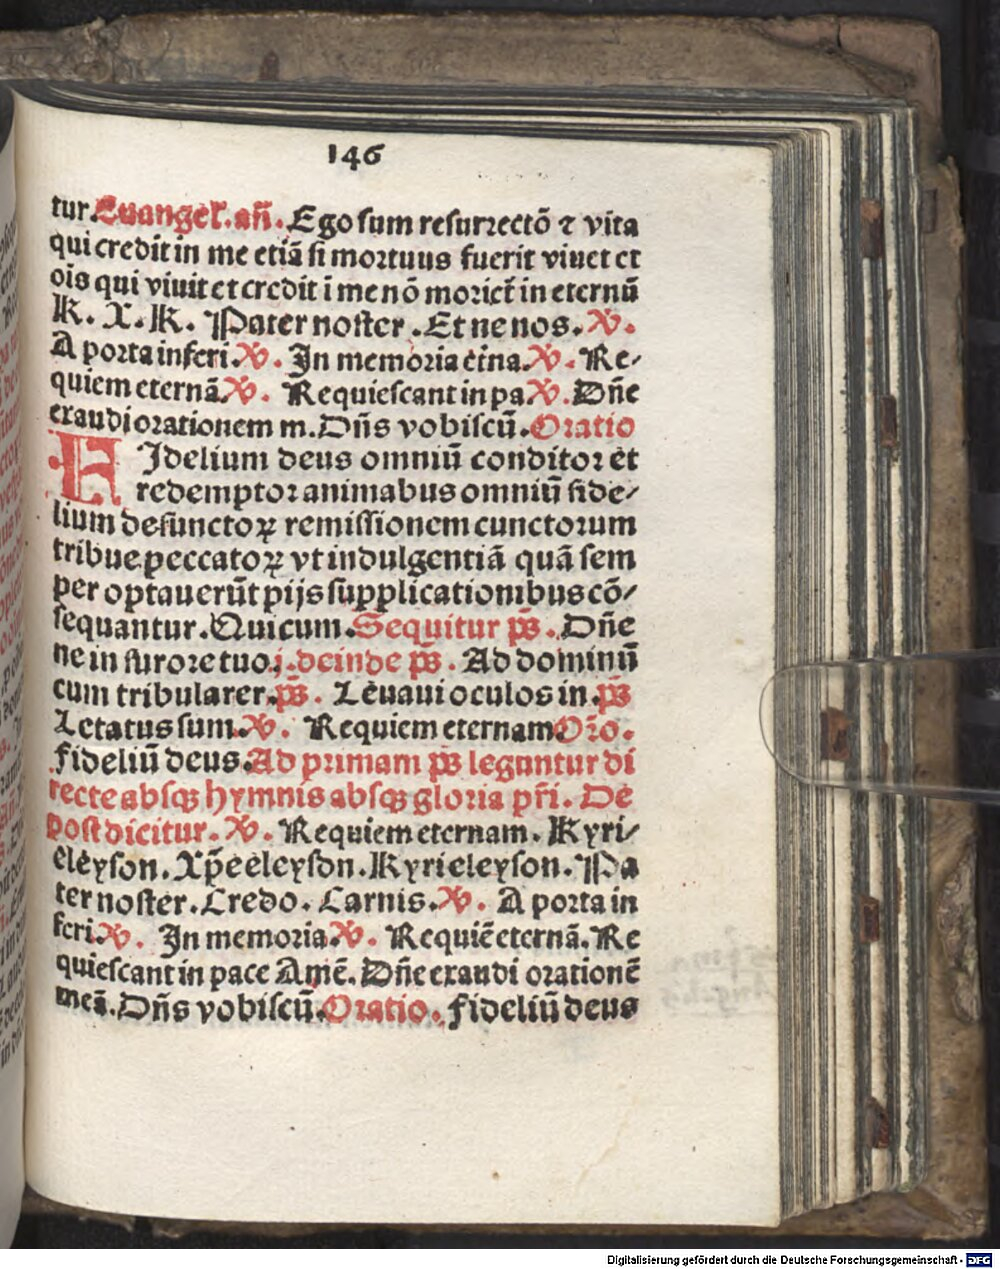 146
tur. Euangel. añ. Ego sum resurrectō ⁊ vita
qui credit in me etiā si mortuus fuerit viuet et
oīs qui viuit et credit ī me nō moriet̃ in eternū
K. X. K. Pater noster. Et ne nos. V̷.
A porta inferi. V̷. In memoria et̄na. V̷. Re⸗
quiem eternā. V̷. Requiescant in pa V̷. Dn̄e
exaudi orationem m. Dn̄s vobiscū. Oratio
FIdelium deus omniū conditor et
redemptor animabus omniū fide⸗
lium defunctoꝝ remissionem cunctorum
tribue peccatoꝝ vt indulgentiā quā sem
per optauerūt pijs supplicationibus cō⸗
sequantur. Qui cum. Sequitur ps̄. Dn̄e
ne in furore tuo. j. deinde ps̄. Ad dominū
cum tribularer. ps̄. Leuaui oculos in. ps̄
Letatus sum. V̷. Requiem eternam Or̄o.
Fideliū deus. Ad primam ps̄ leguntur di
recte absqꝫ hymnis absqꝫ gloria pr̄i. De
post dicitur. V̷. Requiem eternam. Kyri⸗
eleyson. Xp̄e eleyson. Kyrieleyson. Pa
ter noster. Credo. Carnis. V̷. A porta in
feri. V̷. In memoria. V̷. Requiē eternā. Re
quiescant in pace Amē. Dn̄e exaudi orationē
meā. Dn̄s vobiscū. Oratio. Fideliū deus
Digitalisierung gefördert durch die Deutsche Forschungsgemeinschaft - DFG